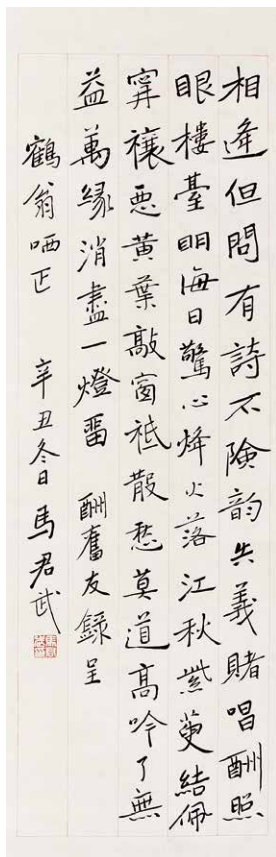 相逢但問有詩不險韵尖義賭唱酬照
眼樓臺明海日驚心烽火落江秋紫萸結佩
寧禳惡黃葉敲窗祗散愁莫道高吟了無
益萬緣消盡一燈畱 酬舊友錄呈
鶴翁哂正 辛丑冬日 馬君武